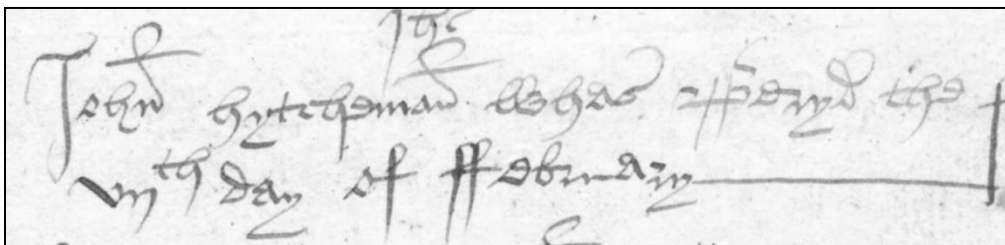 John hytcheman whas xpenyd the
vijth day of ffebruary